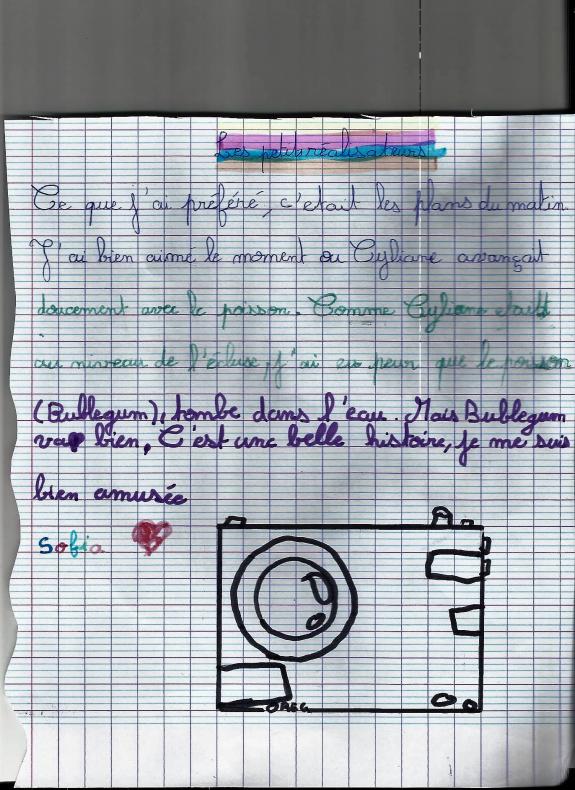 Les petits réalisateurs
Ce que j'ai préféré, c'etait les plans du matin.
J'ai bien aimé le moment ou Cyliane avançait
doucement avec le poisson. Comme Cyliane etait
au niveau de l'écluse, j'ai eu peur que le poisson
(Bublegum), tombe dans l'eau. Mais Bublegum
va bien, C'est une belle histoire, je me suis
bien amusée
Sofia